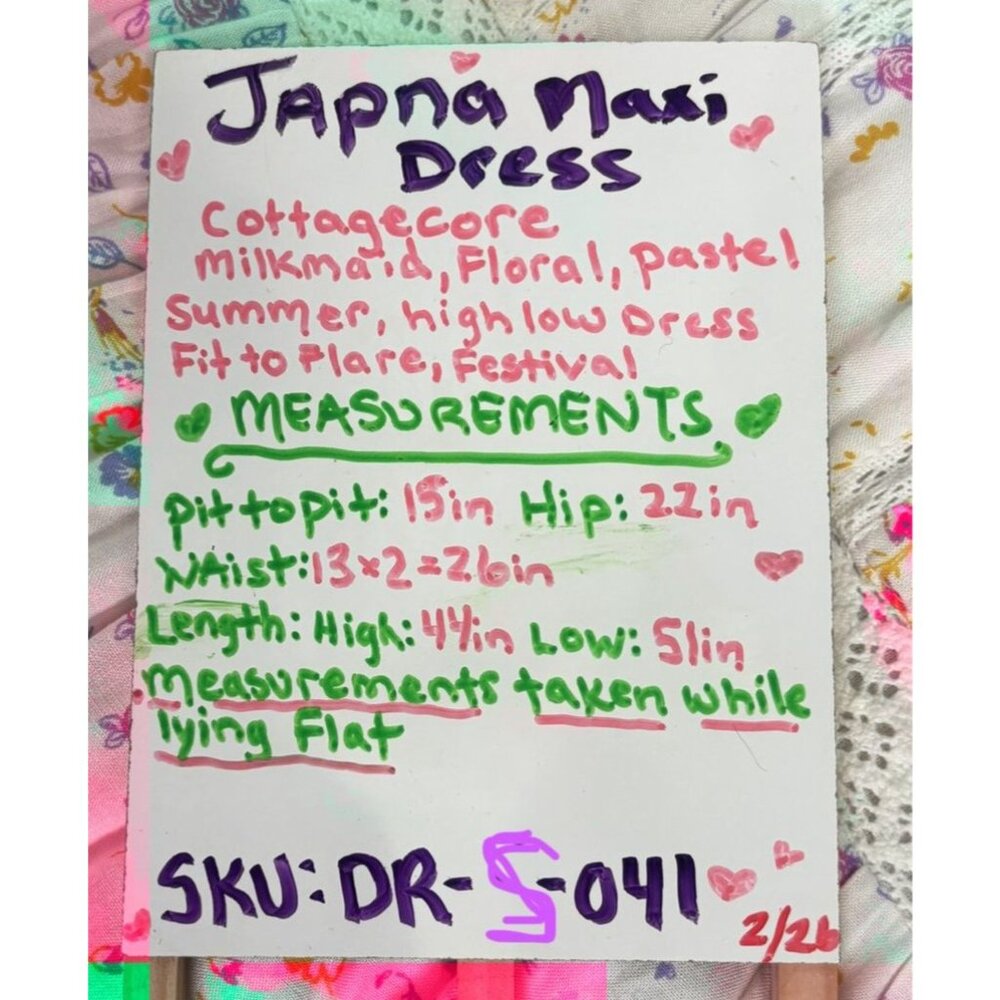 Japna Maxi
Dress
Cottagecore
Milkmaid, Floral, pastel
Summer, high low Dress
Fit to Flare, Festival
MEASUREMENTS
pit to pit: 15in Hip: 22in
WAist: 13x2=26in
Length: High: 44in Low: 51in
measurements taken while
lying Flat
SKU: DR-S-041
2/26